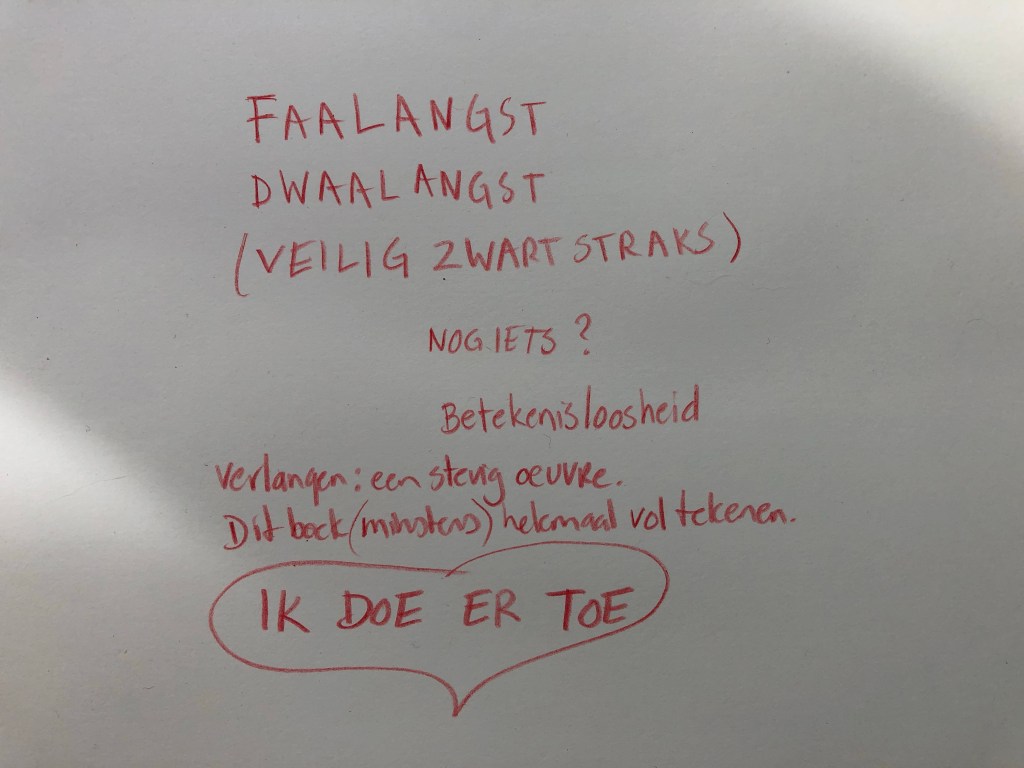 FAALANGST
DWAALANGST
(VEILIG ZWART STRAKS)
NOG IETS?
Betekenisloosheid
Verlangen: een stevig oeuvre.
Dit boek (minstens) helemaal vol tekenen.
IK DOE ER TOE